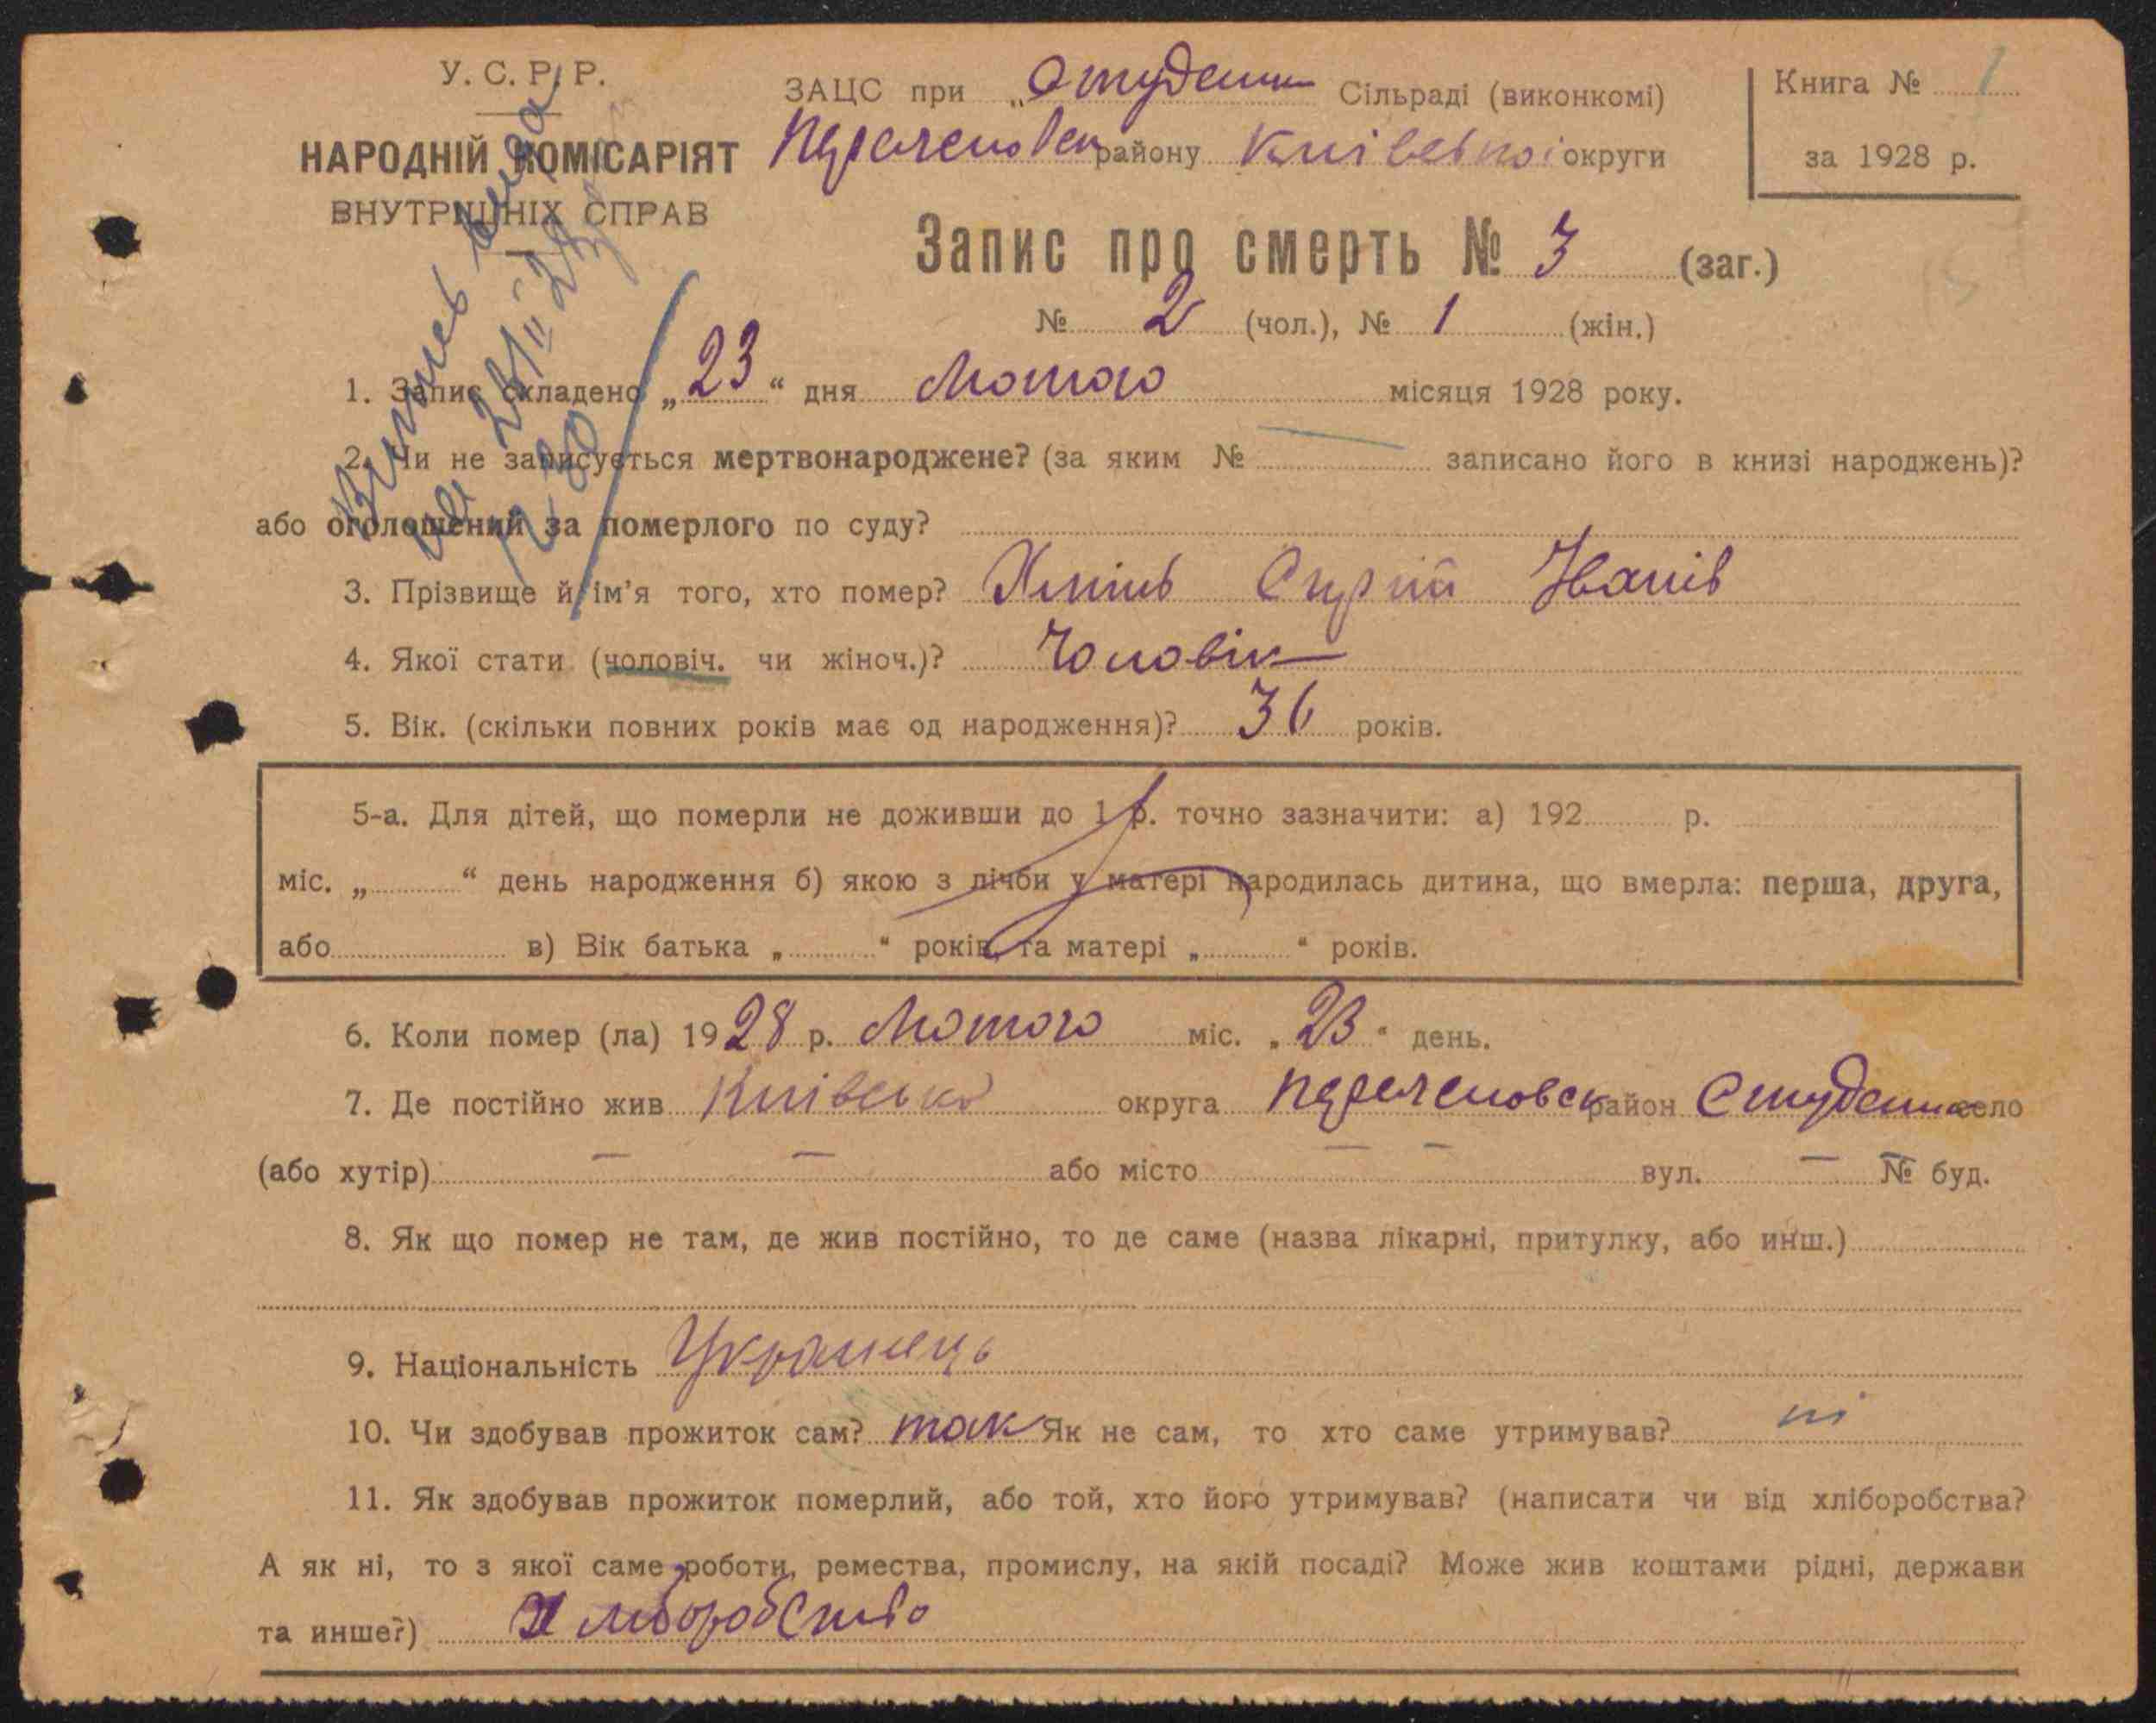 У. С. Р. Р.
НАРОДНІЙ КОМІСАРІЯТ
ВНУТРІШНІХ СПРАВ
ЗАЦС при „Студени Сільраді (виконкомі)
району Київської округи
Книга № 1
за 1928 р.
Запис про смерть № 3 (заг.)
№ 2 (чол.), № 1 (жін.)
1. Запис складено „23“ дня Лютого місяця 1928 року.
2. Чи не записується мертвонароджене? (за яким № записано його в книзі народжень)?
або оголошений за померлого по суду?
3. Прізвище й ім’я того, хто помер? Іванів
4. Якої стати (чоловіч. чи жіноч.)? Чоловік
5. Вік. (скільки повних років має од народження)? 36 років.
5-а. Для дітей, що померли не доживши до 1 р. точно зазначити: а) 192 р.
міс. „ “ день народження б) якою з лічби у матері народилась дитина, що вмерла: перша, друга,
або в) Вік батька „ “ років, та матері „ “ років.
6. Коли помер (ла) 1928 р. Лютого міс. „23“ день.
7. Де постійно жив Київська округа район Студени село
(або хутір) — — або місто — — вул. — № буд.
8. Як що помер не там, де жив постійно, то де саме (назва лікарні, притулку, або инш.)
9. Національність Украинець
10. Чи здобував прожиток сам? так Як не сам, то хто саме утримував? ні
11. Як здобував прожиток померлий, або той, хто його утримував? (написати чи від хліборобства?
А як ні, то з якої саме роботи, ремества, промислу, на якій посаді? Може жив коштами рідні, держави
та инше?) Хліборобство